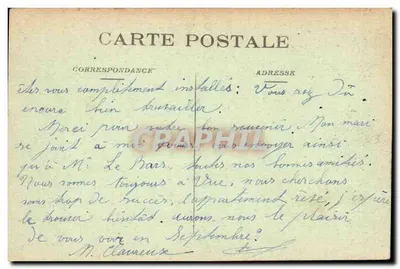 CARTE POSTALE
CORRESPONDANCE
ADRESSE
êtes vous complètement installés: Vous avez dû
encore bien travailler.
Merci pour votre bon souvenir. Mon mari
se joint à moi pour vous envoyer ainsi
qu'à Mr Le Bars toutes nos bonnes amitiés.
Nous sommes toujours à nous cherchons
sans trop de succès, l'appartement rêvé, j'espère
le trouver bientôt. aurons nous le plaisir
de vous voir en Septembre?